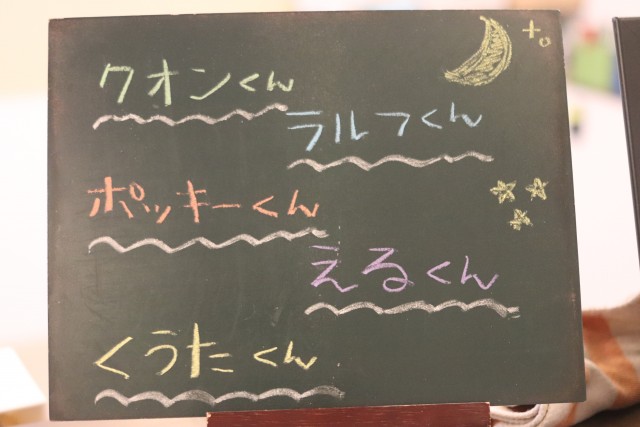 クオンくん
ラルフくん
ポッキーくん
えるくん
くうたくん